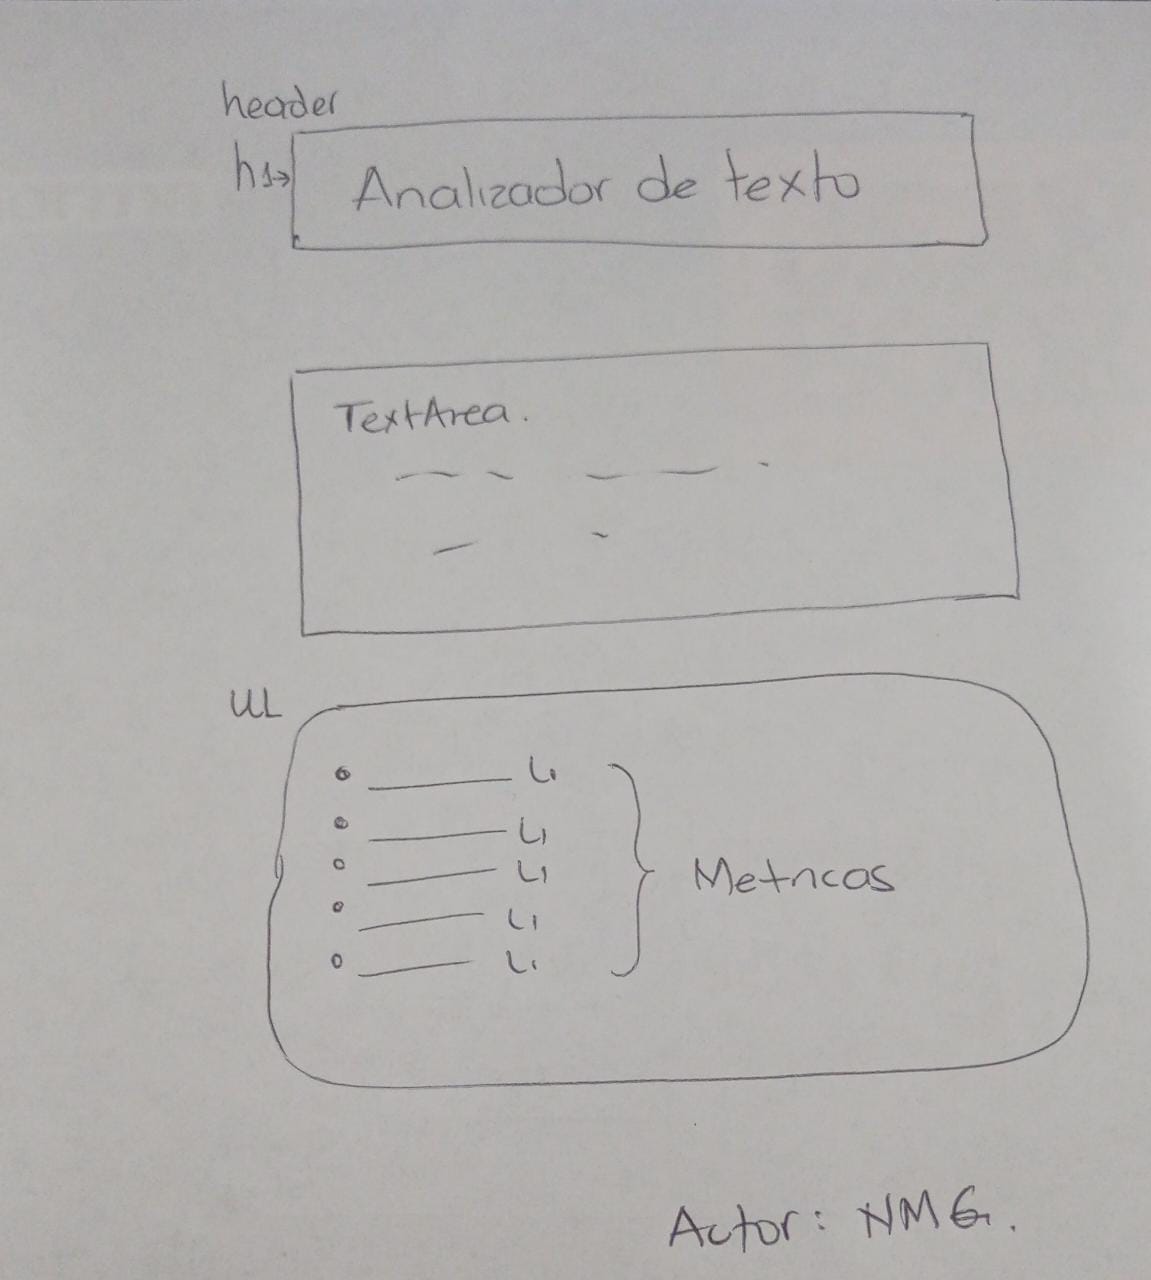 header
h1→ Analizador de texto
TextArea.
UL
Li
Li
Li
Li
Li
Metricas
Actor: NMG.